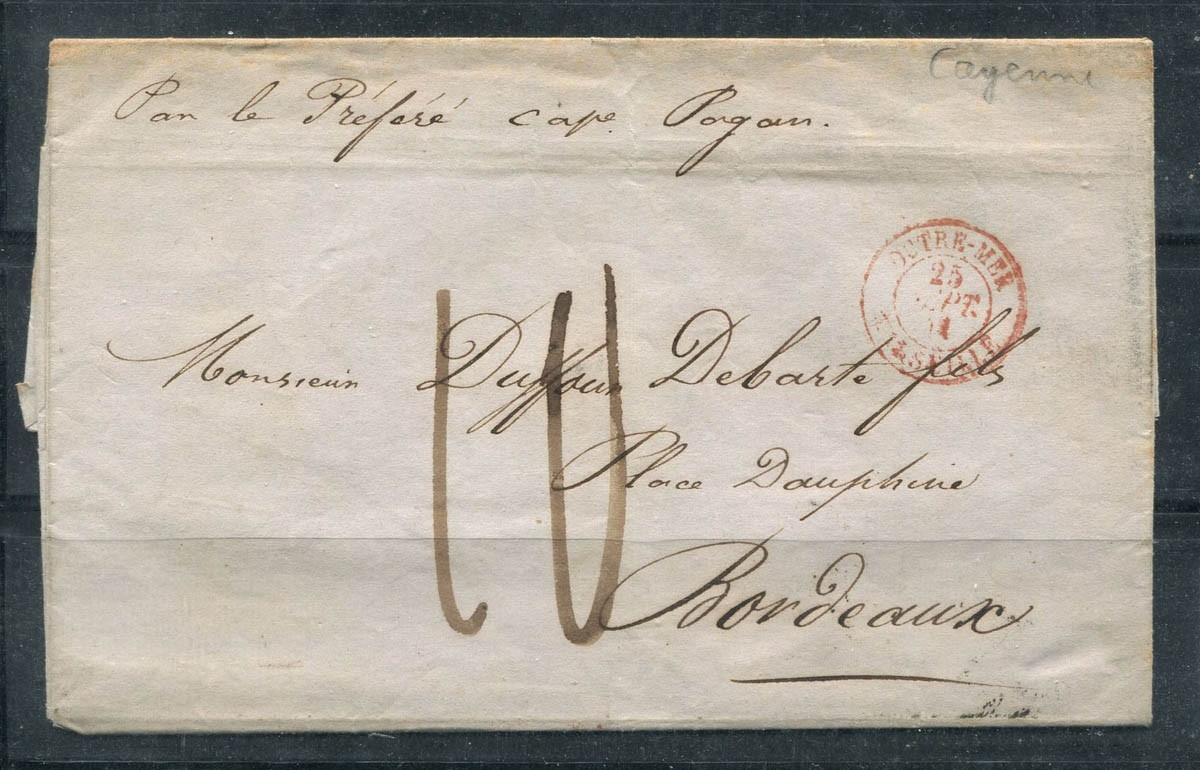 Cayenne
Par le Préféré cape Pagan.
OUTRE-MER
25
SEPT.
MARSEILLE
10
Monsieur Duffour Debarte fils
Place Dauphine
Bordeaux